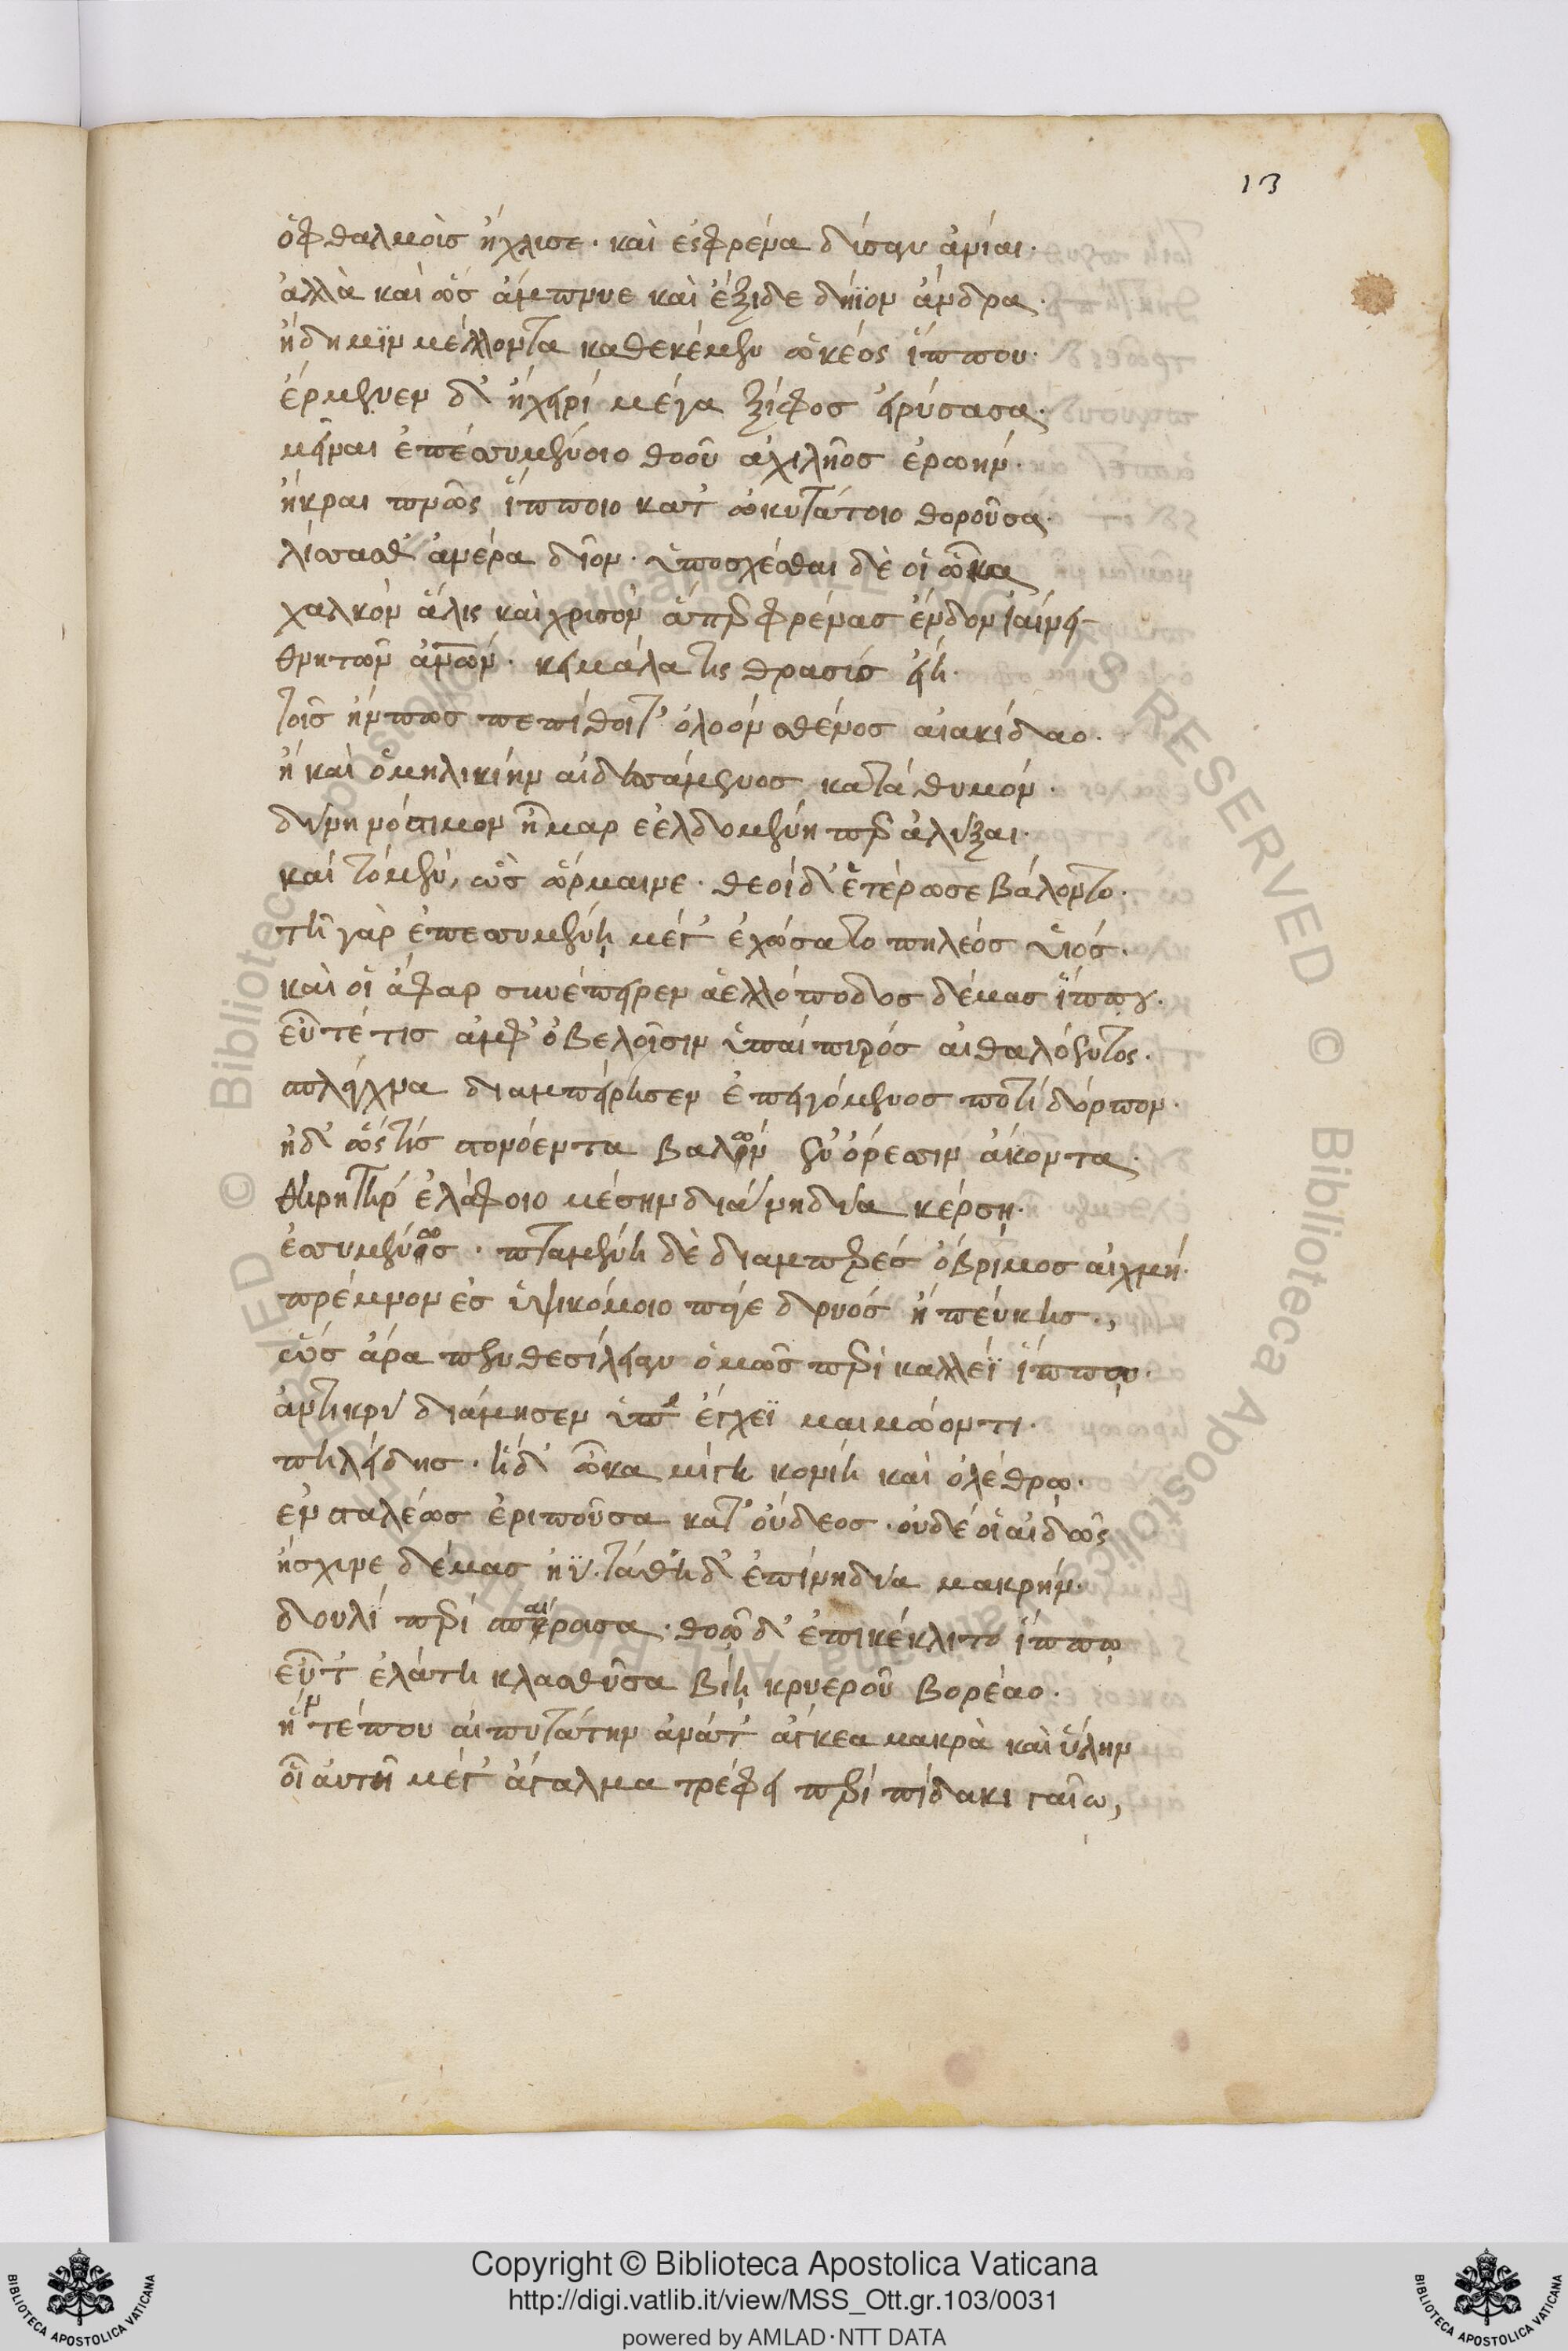 13
ὀφθαλμοῖς ἤχλισε· καὶ ἐς φρένα δύσαν ἀνίαι·
ἀλλὰ καὶ ὣς ἄμπνυε καὶ ἔξιδε δήϊον ἄνδρα·
ἤδη μὶν μέλλοντα καθεκέμεν ὠκέος ἵππου·
ἔρμενεν δ' ἠχειρὶ μέγα ξίφος εἰρύσασα·
μεῖναι ἐπέσσυμένοιο θοοῦ ἀχιλῆος ἐρωήν·
ἤκραι πνῶς ἵπποιο κατ' ὠκυτάτοιο θοροῦσα·
λίσσασθ' ἀνέρα δῖον· ὑποσχέσθαι δὲ οἱ ὦκα
χαλκὸν ἅλις καὶ χρισὸν ἅπερ φρένας ἔνδον ἰαίνει
θνητῶν ἀνῶν· κεἰμάλα τις θρασὺς εἴη·
τοῖς ἤνπως πεπίθοιτ' ὀλοὸν σθένος αἰακίδαο·
ἢ καὶ ὁμηλικίην αἰδεσσάμενος κατὰ θυμόν·
δώη νόστιμον ἦμαρ ἐελδομένη περ ἀλύξαι·
καὶ τὸμέν, ὣς ὥρμαινε· θεοὶ δ' ἑτέρωσε βάλοντο·
τῆ γὰρ ἐπεσσυμένῃ μέγ' ἐχώσατο πηλέος ὑιός·
καὶ οἱ ἄφαρ συνέπειρεν ἀελλόποδος δέμας ἵππου·
εὖτέ τις ἀμφ' ὀβελοῖσιν ὑπαὶ πυρὸς αἰθαλόεντος·
σπλάγχνα διαμπείρησεν ἐπειγόμενος ποτὶ δόρπον·
ἠδ' ὥς τις στονόεντα βαλὼν ἐν ὄρεσσιν ἄκοντα·
θηρητὴρ ἐλάφοιο μέσην διὰ νηδύα κέρσῃ·
ἐσσυμένως· πταμένη δὲ διαμπερὲς ὄβριμος αἰχμή·
πρέμνον ἐς ὑψικόμοιο πάγε δρυὸς ἢ πεύκης·,
ὣς ἄρα πενθεσίλειαν ὁμῶς περὶ καλλέϊ ἵππου·
ἀντικρὺ διάμησεν ὑπ' ἔγχεϊ μαιμώοντι·
πηλείδης· ἡ δ' ὦκα μίγη κονίη καὶ ὀλέθρω·
εὐσταλέως ἐριποῦσα κατ' οὔδεος· οὐδέ οἱ αἰδὼς
ἤσχινε δέμας ἠΰ· τάθη δ' ἐπὶ νηδύα μακρήν·
δουλὶ περὶ σπαίρουσα· θοῷ δ' ἐπικέκλιτο ἵππω
εὖτ' ἐλάτη κλασθεῖσα βίῃ κρυεροῦ βορέαο·
ἥν τέπου αἰπυτάτην ἀνάτ' ἄγκεα μακρὰ καὶ ὕλην
οἷ αὐτῆ μέγ' ἄγαλμα τρέφει περὶ πίδακι γαίω,
© Biblioteca Apostolica Vaticana ALL RIGHTS RESERVED © Biblioteca Apostolica Vaticana ALL RIGHTS RESERVED
Copyright © Biblioteca Apostolica Vaticana
http://digi.vatlib.it/view/MSS_Ott.gr.103/0031
powered by AMLAD·NTT DATA
BIBLIOTECA APOSTOLICA VATICANA
BIBLIOTECA APOSTOLICA VATICANA